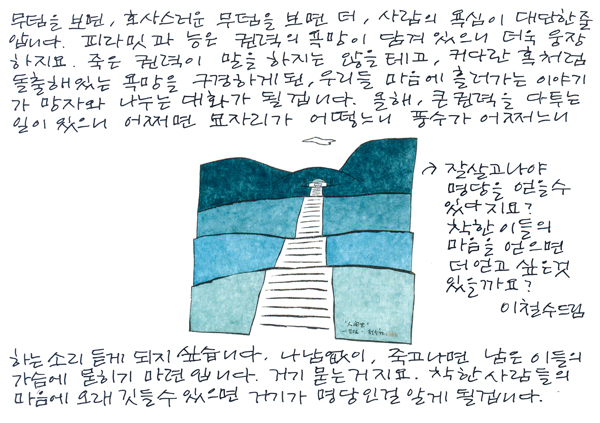 무덤을 보면, 호사스러운 무덤을 보면 더, 사람의 욕심이 대단한줄
압니다. 피라밋과 능은 권력의 욕망이 담겨 있으니 더욱 웅장
하지요. 죽은 권력이 말을 하지는 않을테고, 커다란 혹처럼
돌출해있는 욕망을 구경하게 된, 우리들 마음에 흘러가는 이야기
가 망자와 나누는 대화가 될겁니다. 올해, 큰권력을 다투는
일이 있으니 어쩌면 묘자리가 어떻느니 풍수가 어쩌느니
→ 잘살고나야
명당을 얻을수
있다지요?
착한 이들의
마음을 얻으면
더 얻고 싶은것
있을까요?
이철수드림
하는 소리 듣게 되지 싶습니다. 나남없이, 죽고나면 남은 이들의
가슴에 묻히기 마련입니다. 거기 묻는거지요. 착한 사람들의
마음에 오래 깃들수 있으면 거기가 명당인걸 알게 될겁니다.